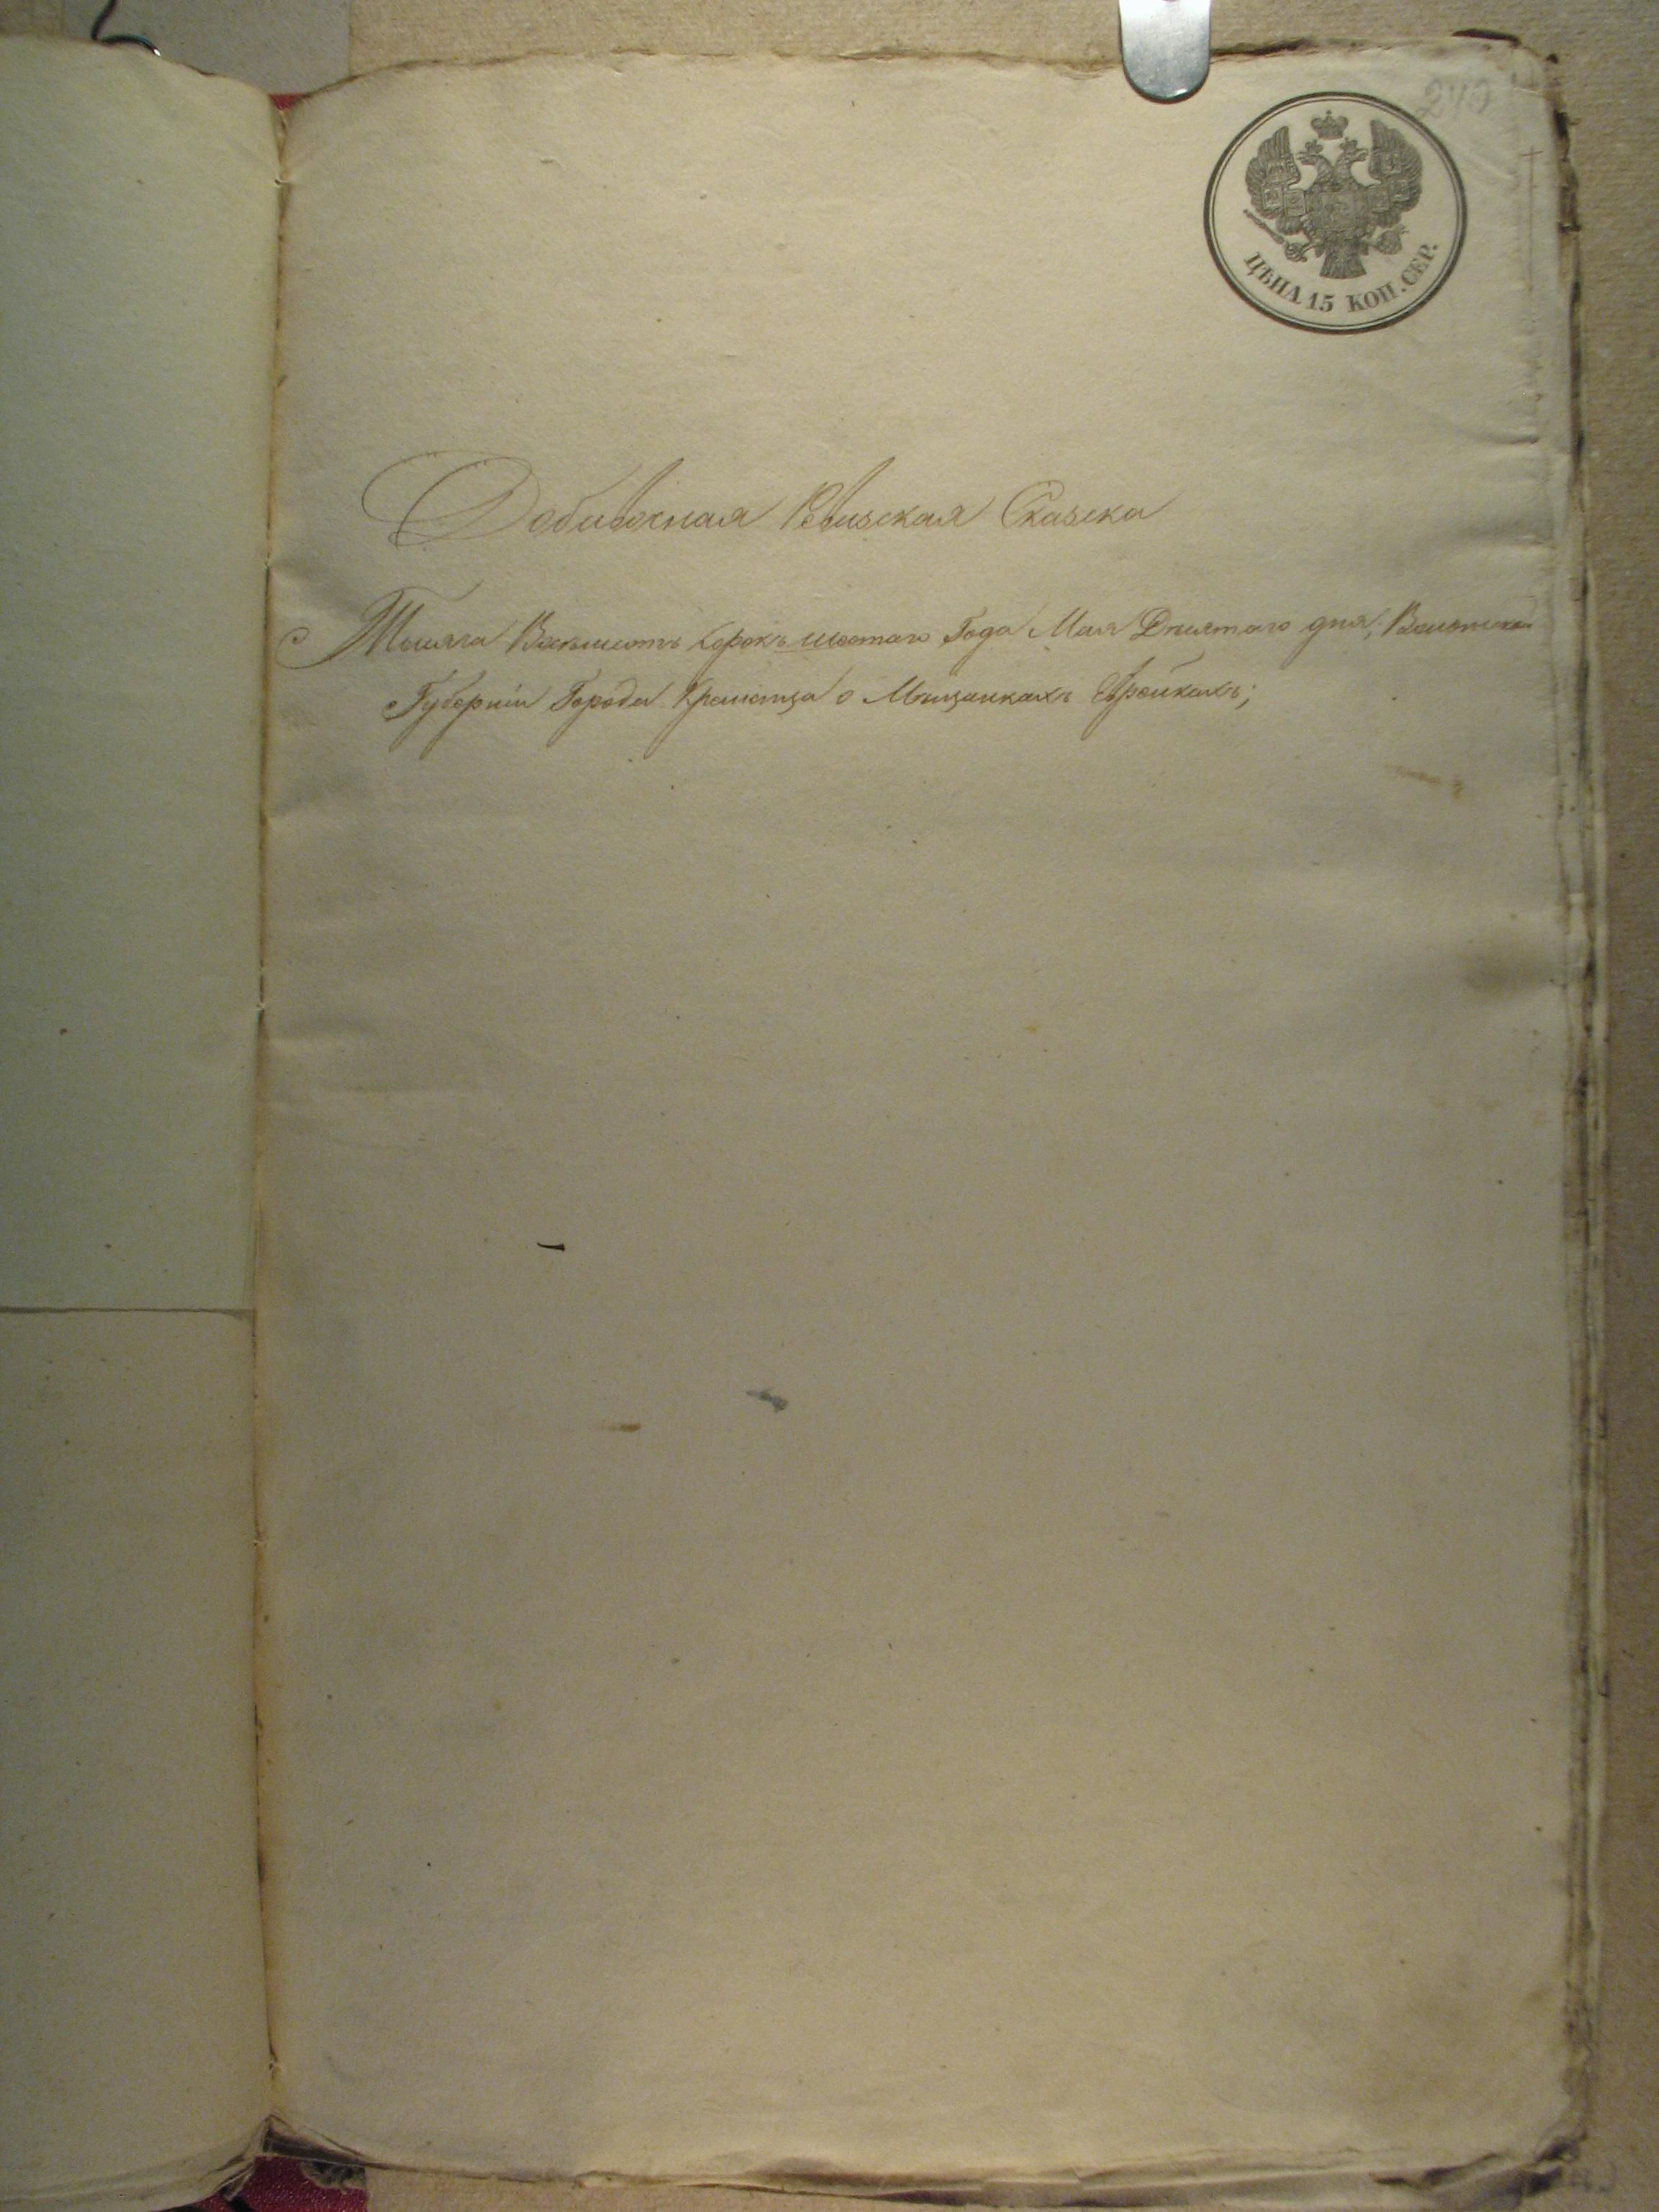 240
ЦѢНА 15 КОП. СЕР.
Ревизская Сказска
Тысяча Восемьсотъ сорокъ шестаго Года Мая Девятаго дня; Волынской
Губерніи Города Кременца о Мещанкахъ Еврейкахъ;